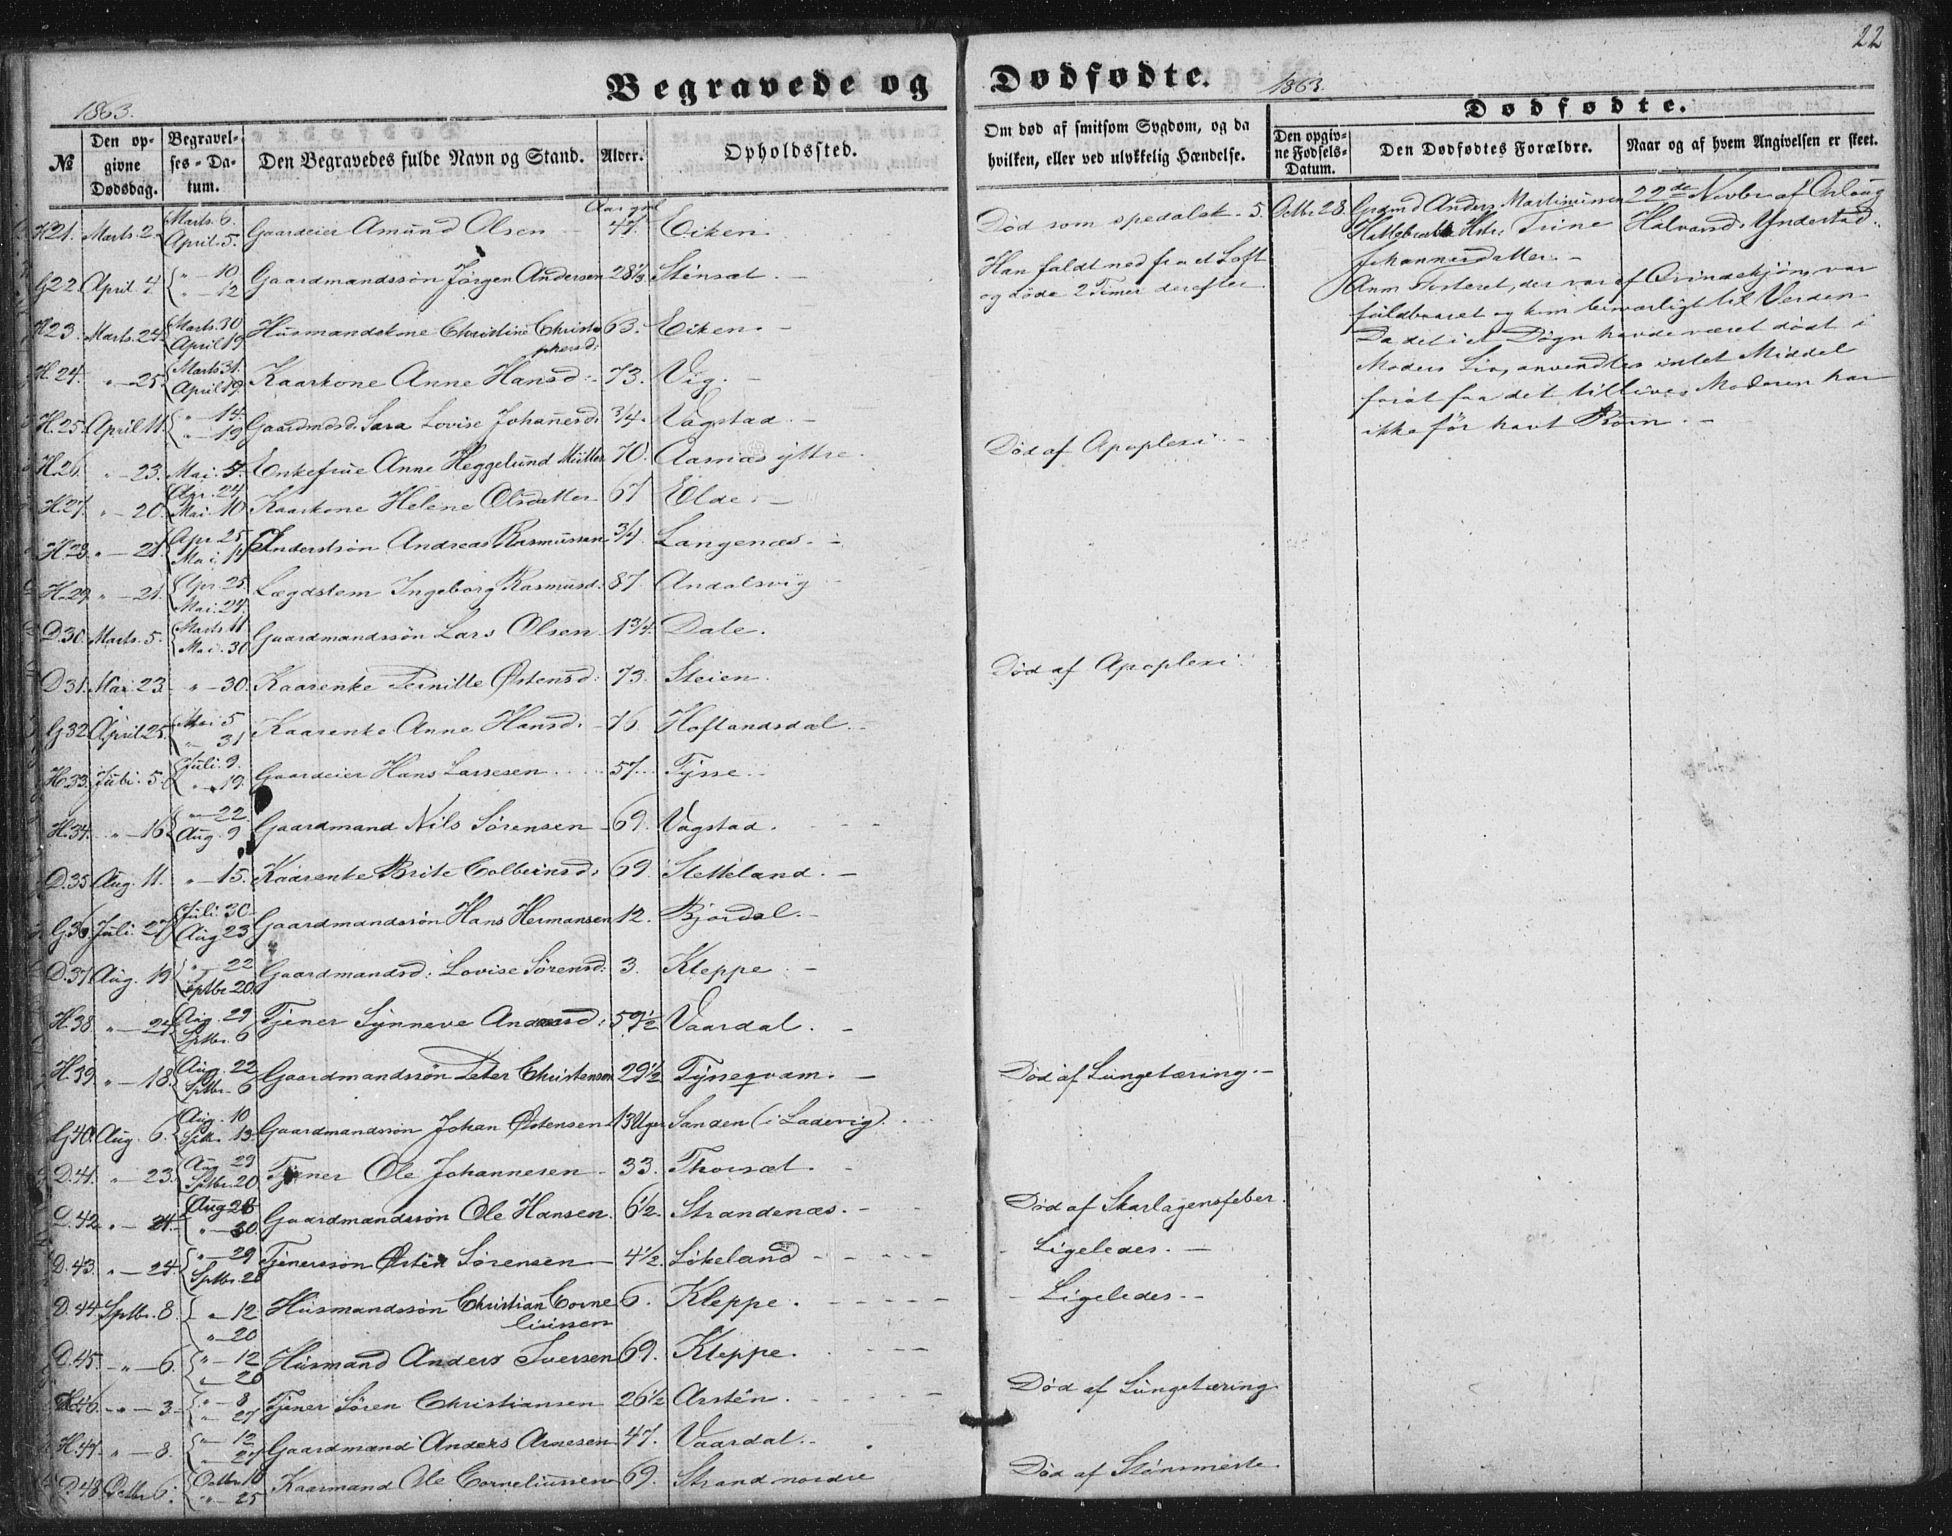 22
Begravede og Dødfødte.
1863.
1863.
№
Den opgivne Dødsdag.
Begravelses-Datum.
Den Begravedes fulde Navn og Stand.
Alder.
Opholdssted.
Om død af smitsom Sygdom, og da hvilken, eller ved ulykkelig Hændelse.
Dødfødte.
Den opgivne Fødsels-Datum.
Den Dødfødtes Forældre.
Naar og af hvem Angivelsen er skeet.
H.21. Marts. 2. Marts. 6. April. 5. Gaardeier Amund Olsen 47. Eiken. Død som spedalsk.
G.22. April. 4. " 10 " 12 Gaardmandssön Jörgen Andersen 28 1/3. Stensæt. Han faldt ned fra et Loft
og døde 2 Timer derefter
H.23. Marts. 24. Marts. 30 April 19 Husmandskone Christine Christophersd: 63. Eiken.
H.24. " 25. Marts 31. April 19. Kaarkone Anne Hansd: 73. Vig.
H.25. April 11. " 14. " 19 Gaardmdsd. Sara Lovise Johanesd. 3/4. Vagstad.
H.26. " 23. Mai. 4. Enkefrue Anne Heggelund Müller 70. Aarnæs yttre. Død af Apoplexi.
H.27. " 20. Apr. 24. Mai. 10 Kaarkone Helene Olsdatter 67 Elde.
H.28. " 21. Apr. 25. Mai. Inderstsön Andreas Rasmussen 3/4 Langenæs.
H.29. " 21. Apr. 25. Mai. 24. Lægdslem Ingeborg Rasmusd: 87. Andalsvig
D.30. Marts. 5. Marts 11 Mai. 30 Gaardmandssön Lars Olsen 1 3/4. Dale.
D.31. Mai. 23. " 30. Kaarenke Pernille Østensd: 73. Steien. Død af Apoplexi.
G.32. April 25. Mai 5 " 31 Kaarenke Anne Hansd. 76. Hoflandsdal.
H.33. Juli. 5. Juli. 9. " 19. Gaardeier Hans Larsesen 57. Tysse.
H.34. " 16. " 22. Aug. 9 Gaardmand Nils Sörensen 69. Vagstad.
D.35. Aug. 11. " 15. Kaarenke Brite Colbeinsd. 69. Sletteland.
G.36. Juli. 27 Juli. 30. Aug 23 Gaardmandssön Hans Hermansen 12. Bjordal.
D.37. Aug. 19 " 22 Sptbr 20. Gaardmandsd: Lovise Sörensd: 3. Kleppe.
H.38. " 24. Aug. 29 Sptbr. 6 Tjener Synneve Andersd: 59 1/2 Vaardal.
H.39. " 18. Aug. 22 Sptbr. 6 Gaardmandssön Peter Christensen 29 1/2 Tysseqvam. Død af Lungetæring.
G.40. Aug. 6. Aug. 10 Sptb. 13. Gaardmandssön Johan Østensen 13 Uger Sanden (i Ladevig).
D.41. " 23. Aug 29 Sptbr. 20 Tjener Ole Johannesen 33. Thorsæt.
D.42. " 24. Aug 28 " 30. Gaardmandssön Ole Hansen. 6 1/2. Strandenæs. Død af Skarlagensfeber.
D.43. " 24. " 29 Sptbr. 20 Tjenerssön Østen Sörensen 4 1/2. Lökeland Ligeledes.
D.44. Sptbr. 8. " 12 " 20 Husmandssön Christian Corneliussen 6. Kleppe. Ligeledes.
D.45. " 6. " 12 " 20 Husmand Anders Iversen 69. Kleppe.
H.46. " 3. " 8 " 27 Tjener Sören Christiansen 26 1/2 Arstèn. Død af Lungetæring
H.47. " 8. " 12 " 27 Gaardmand Anders Arnesen 47. Vaardal.
D.48 Octbr 6. Octbr. 10 " 25 Kaarmand Ole Corneliussen 69. Strand nordre
5. Octbr. 28. Grdmd Anders Martinussen
Hattebrekke Hstr. Trine
Johannesdatter.
22de Novbr af Orloug
Halvorsd. Yndestad.
Anm Fosteret, der var af Qvindekjön, var
fuldbaaret og kom levnligt til Verden
Da det i et Døgn havde været dødt i
Moders Liv, anvendtes intet Middel
forat faa det tillive. Moderen har
ikke för havt Börn.